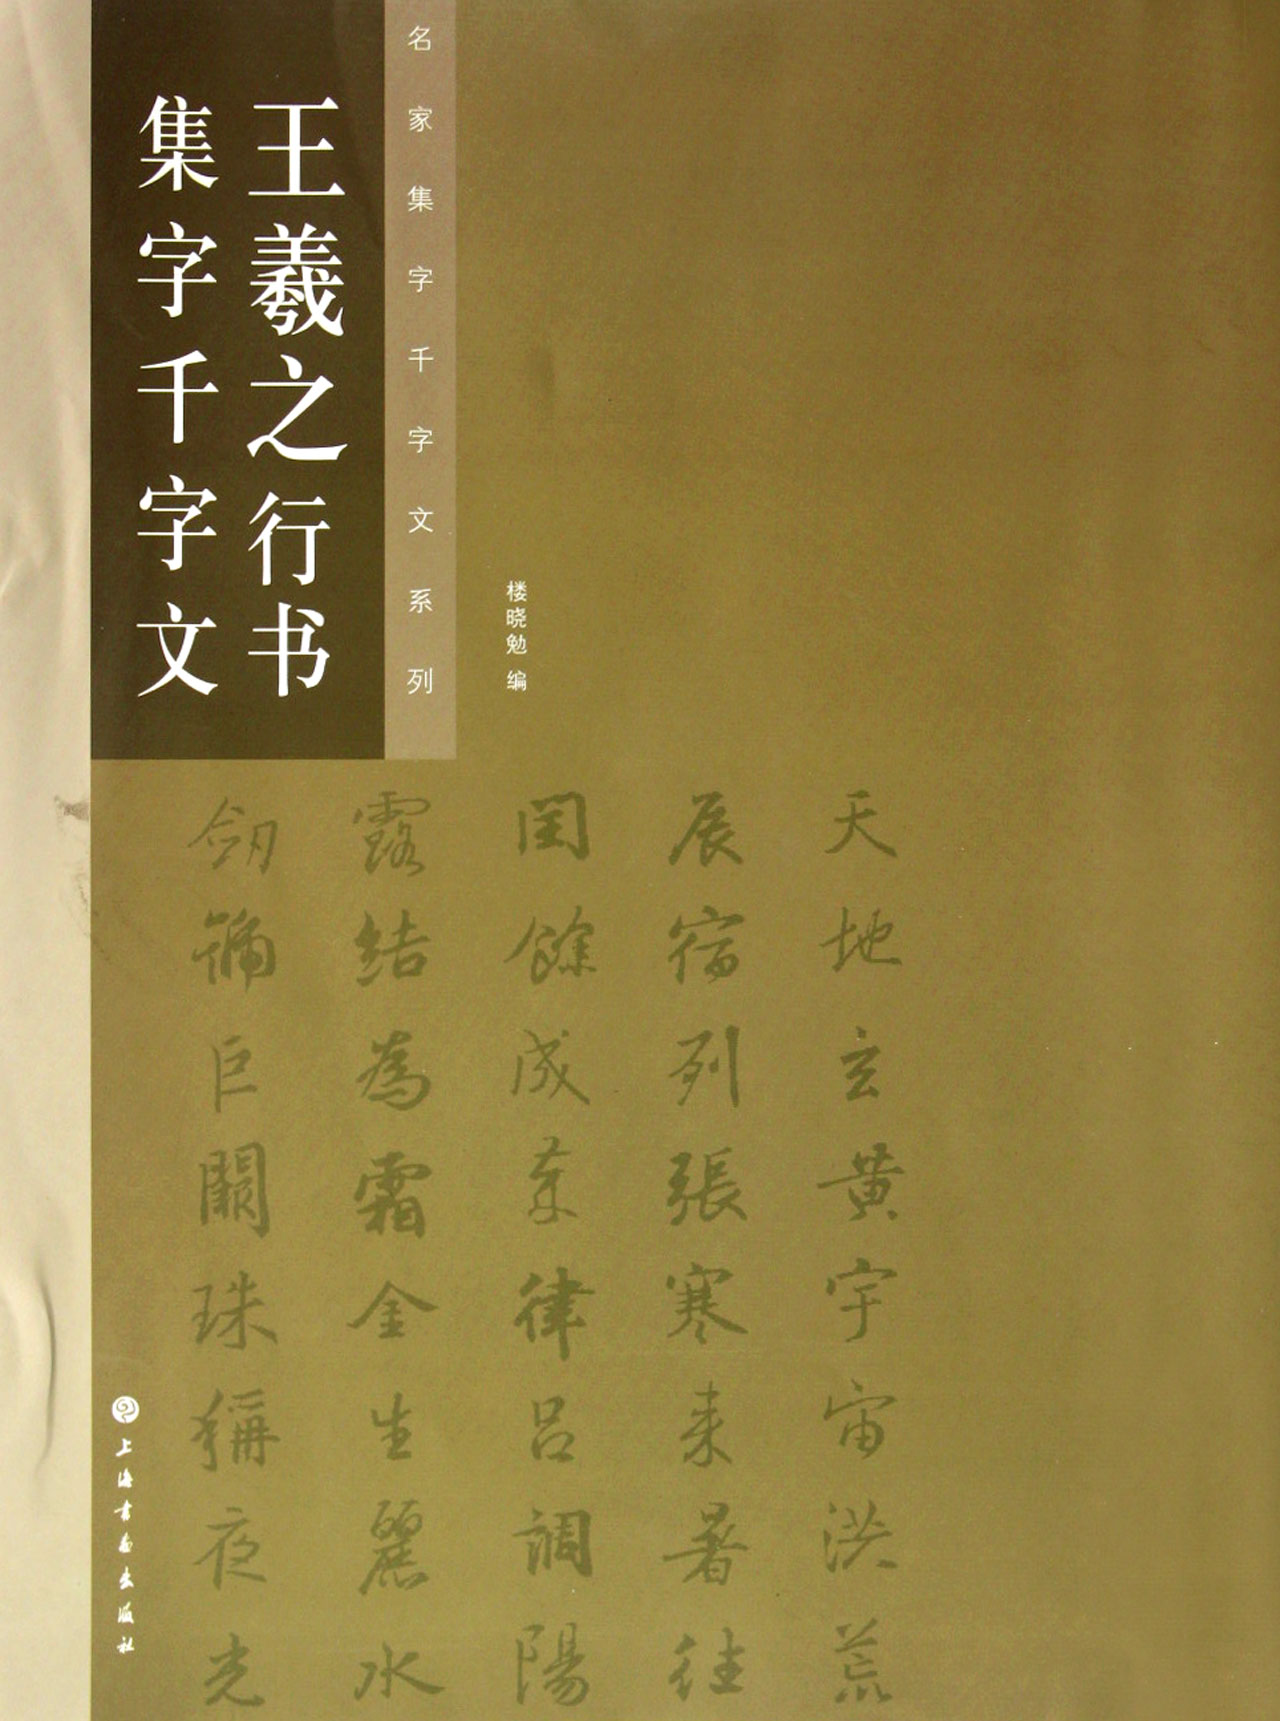 名家集字千字文系列
王羲之行书
集字千字文
楼晓勉 编
天地玄黄宇宙洪荒
辰宿列張寒来暑往
閏餘成棻律吕調陽
露結為霜金生麗水
劒號巨闕珠稱夜光
上海書畫出版社